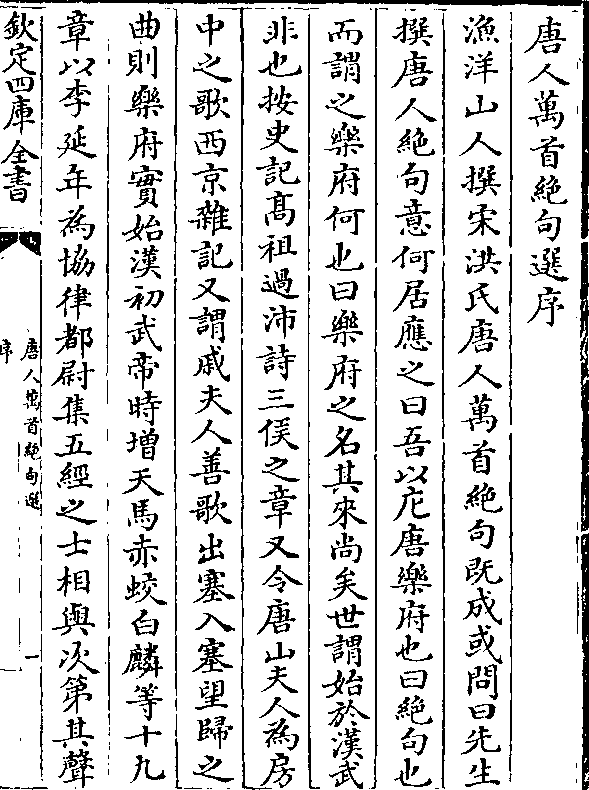 唐人萬首絶句選序
漁洋山人撰宋洪氏唐人萬首絶句既成或問曰先生
撰唐人絶句意何居應之曰吾以庀唐樂府也曰絶句也
而謂之樂府何也曰樂府之名其來尚矣世謂始於漢武
非也按史記髙祖過沛詩三侯之章又令唐山夫人為房
中之歌西京雜記又謂戚夫人善歌出塞入塞望歸之
曲則樂府實始漢初武帝時增天馬赤蛟白麟等十九
章以李延年為協律都尉集五經之士相與次第其聲
欽定四庫全書
唐人萬首絶句選
序
一